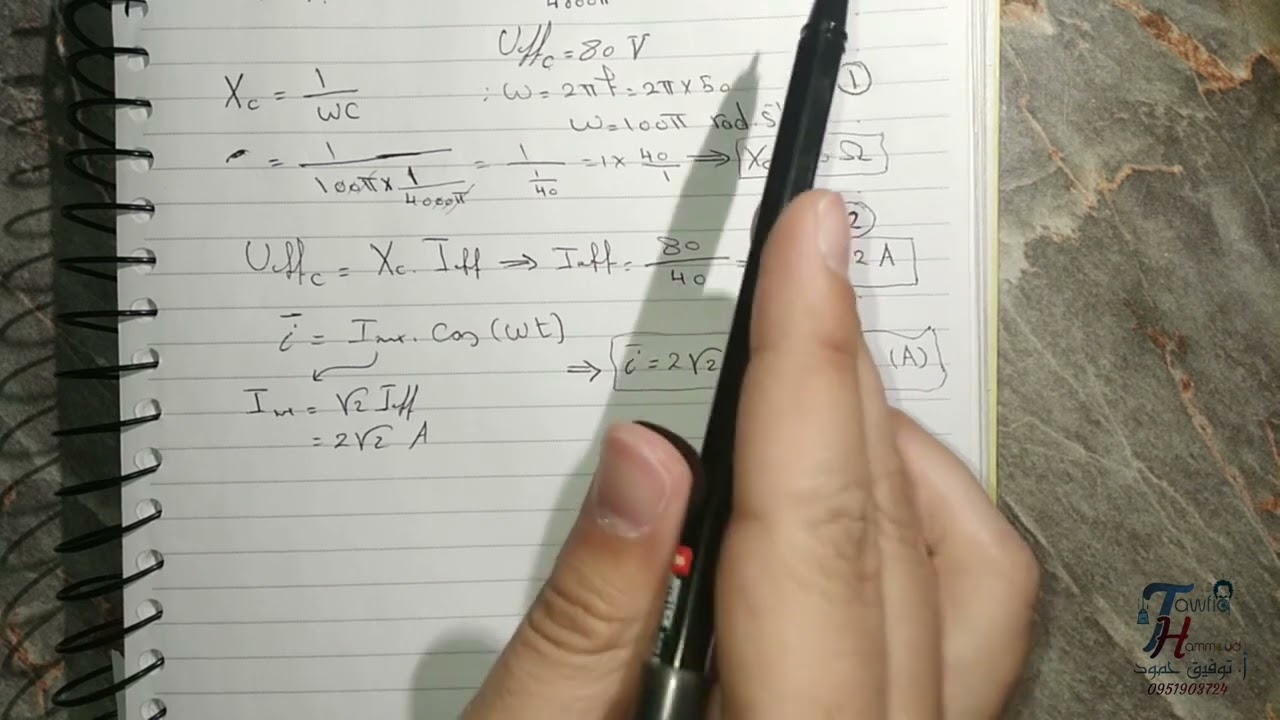 4000π
Ueff_C = 80 V
X_C = 1/ωC ; ω = 2πf = 2π×50 ①
ω = 100π rad.s
= 1/(100π × 1/4000π) = 1/(1/40) = 1 × 40/1 ⇒ X Ω
2
Ueff_C = X_C . Ieff ⇒ Ieff = 80/40 = 2 A
i̅ = Imax . Cos(ωt)
⇒ i̅ = 2√2 (A)
Imax = √2 Ieff
= 2√2 A
Tawfiq
Hammoud
أ. توفيق حمود
0951903724